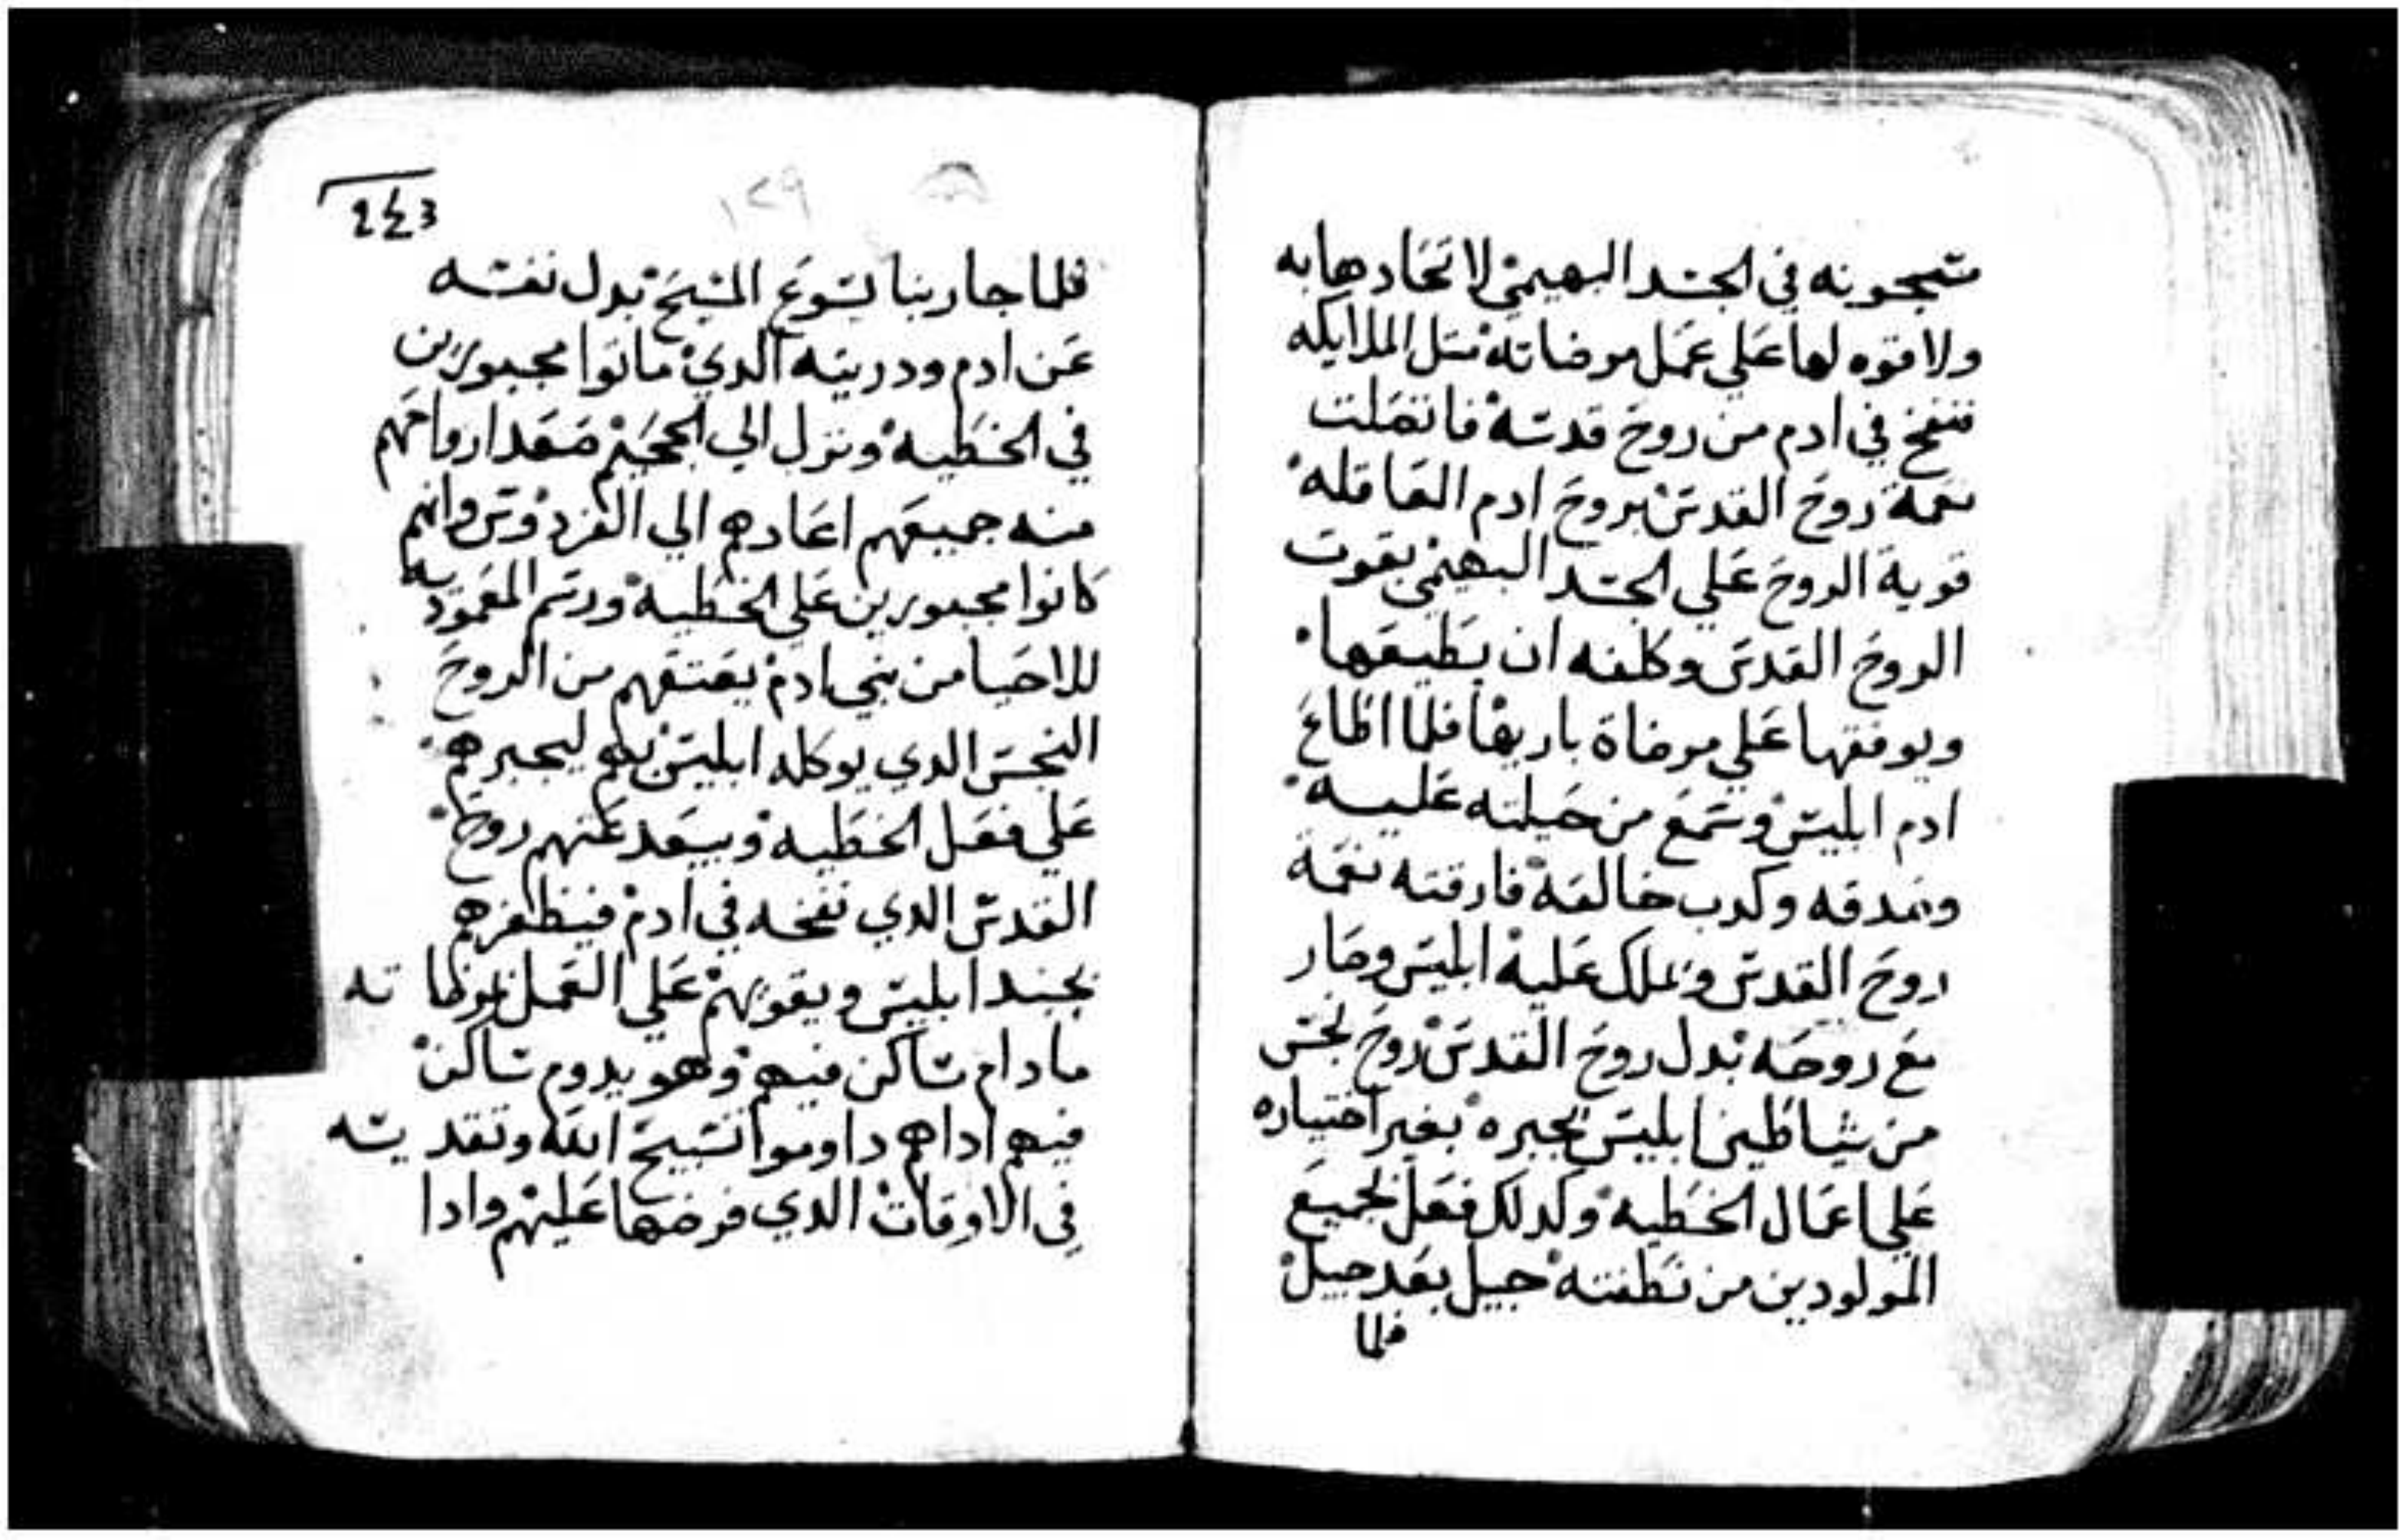 مسجونه في الجسد البهيمي لاتحادها به
ولا قوه لها علي عمل مرضاته متل الملايكه
فنفخ في ادم من روح قدسه فاتصلت
نعمة روح القدس بروح ادم العاقله
قوية الروح علي الجسد البهيمي بقوت
الروح القدس وكلفه ان يطيعها
ويوفقها علي مرضاة باريها فلما اطاع
ادم ابليس وسمع من حيلته عليه
وصدقه وكدب خالقه فارقته نعمة
روح القدس وملك عليه ابليس وصار
مع روحه بدل روح القدس روح نجس
من شياطين ابليس يجبره بغير اختياره
علي اعمال الخطيه وكدلك فعل بجميع
المولودين من نطفته جيل بعد جيل
فلما
243
١٢٩
فلما جا ربنا يسوع المسيح بدل نفسه
عن ادم ودريته الدي ماتوا مجبورين
في الخطيه ونزل الي الجحيم صعد ارواحهم
منه جميعهم اعادهم الي الفردوس وانهم
كانوا مجبورين علي الخطيه ورسم المعموديه
للاحيا من بني ادم يعتقهم من الروح
النجس الدي يوكله ابليس بهم ليجبرهم
علي فعل الخطيه وبيعد عنهم روح
القدس الدي نفخه في ادم فيظفرهم
بجند ابليس ويقويهم علي العمل بمرضاته
مادام ساكن فيهم وهو يدوم ساكن
فيهم اداهم داوموا تسبيح الله وتقديسه
في الاوقات الدي فرضها عليهم وادا